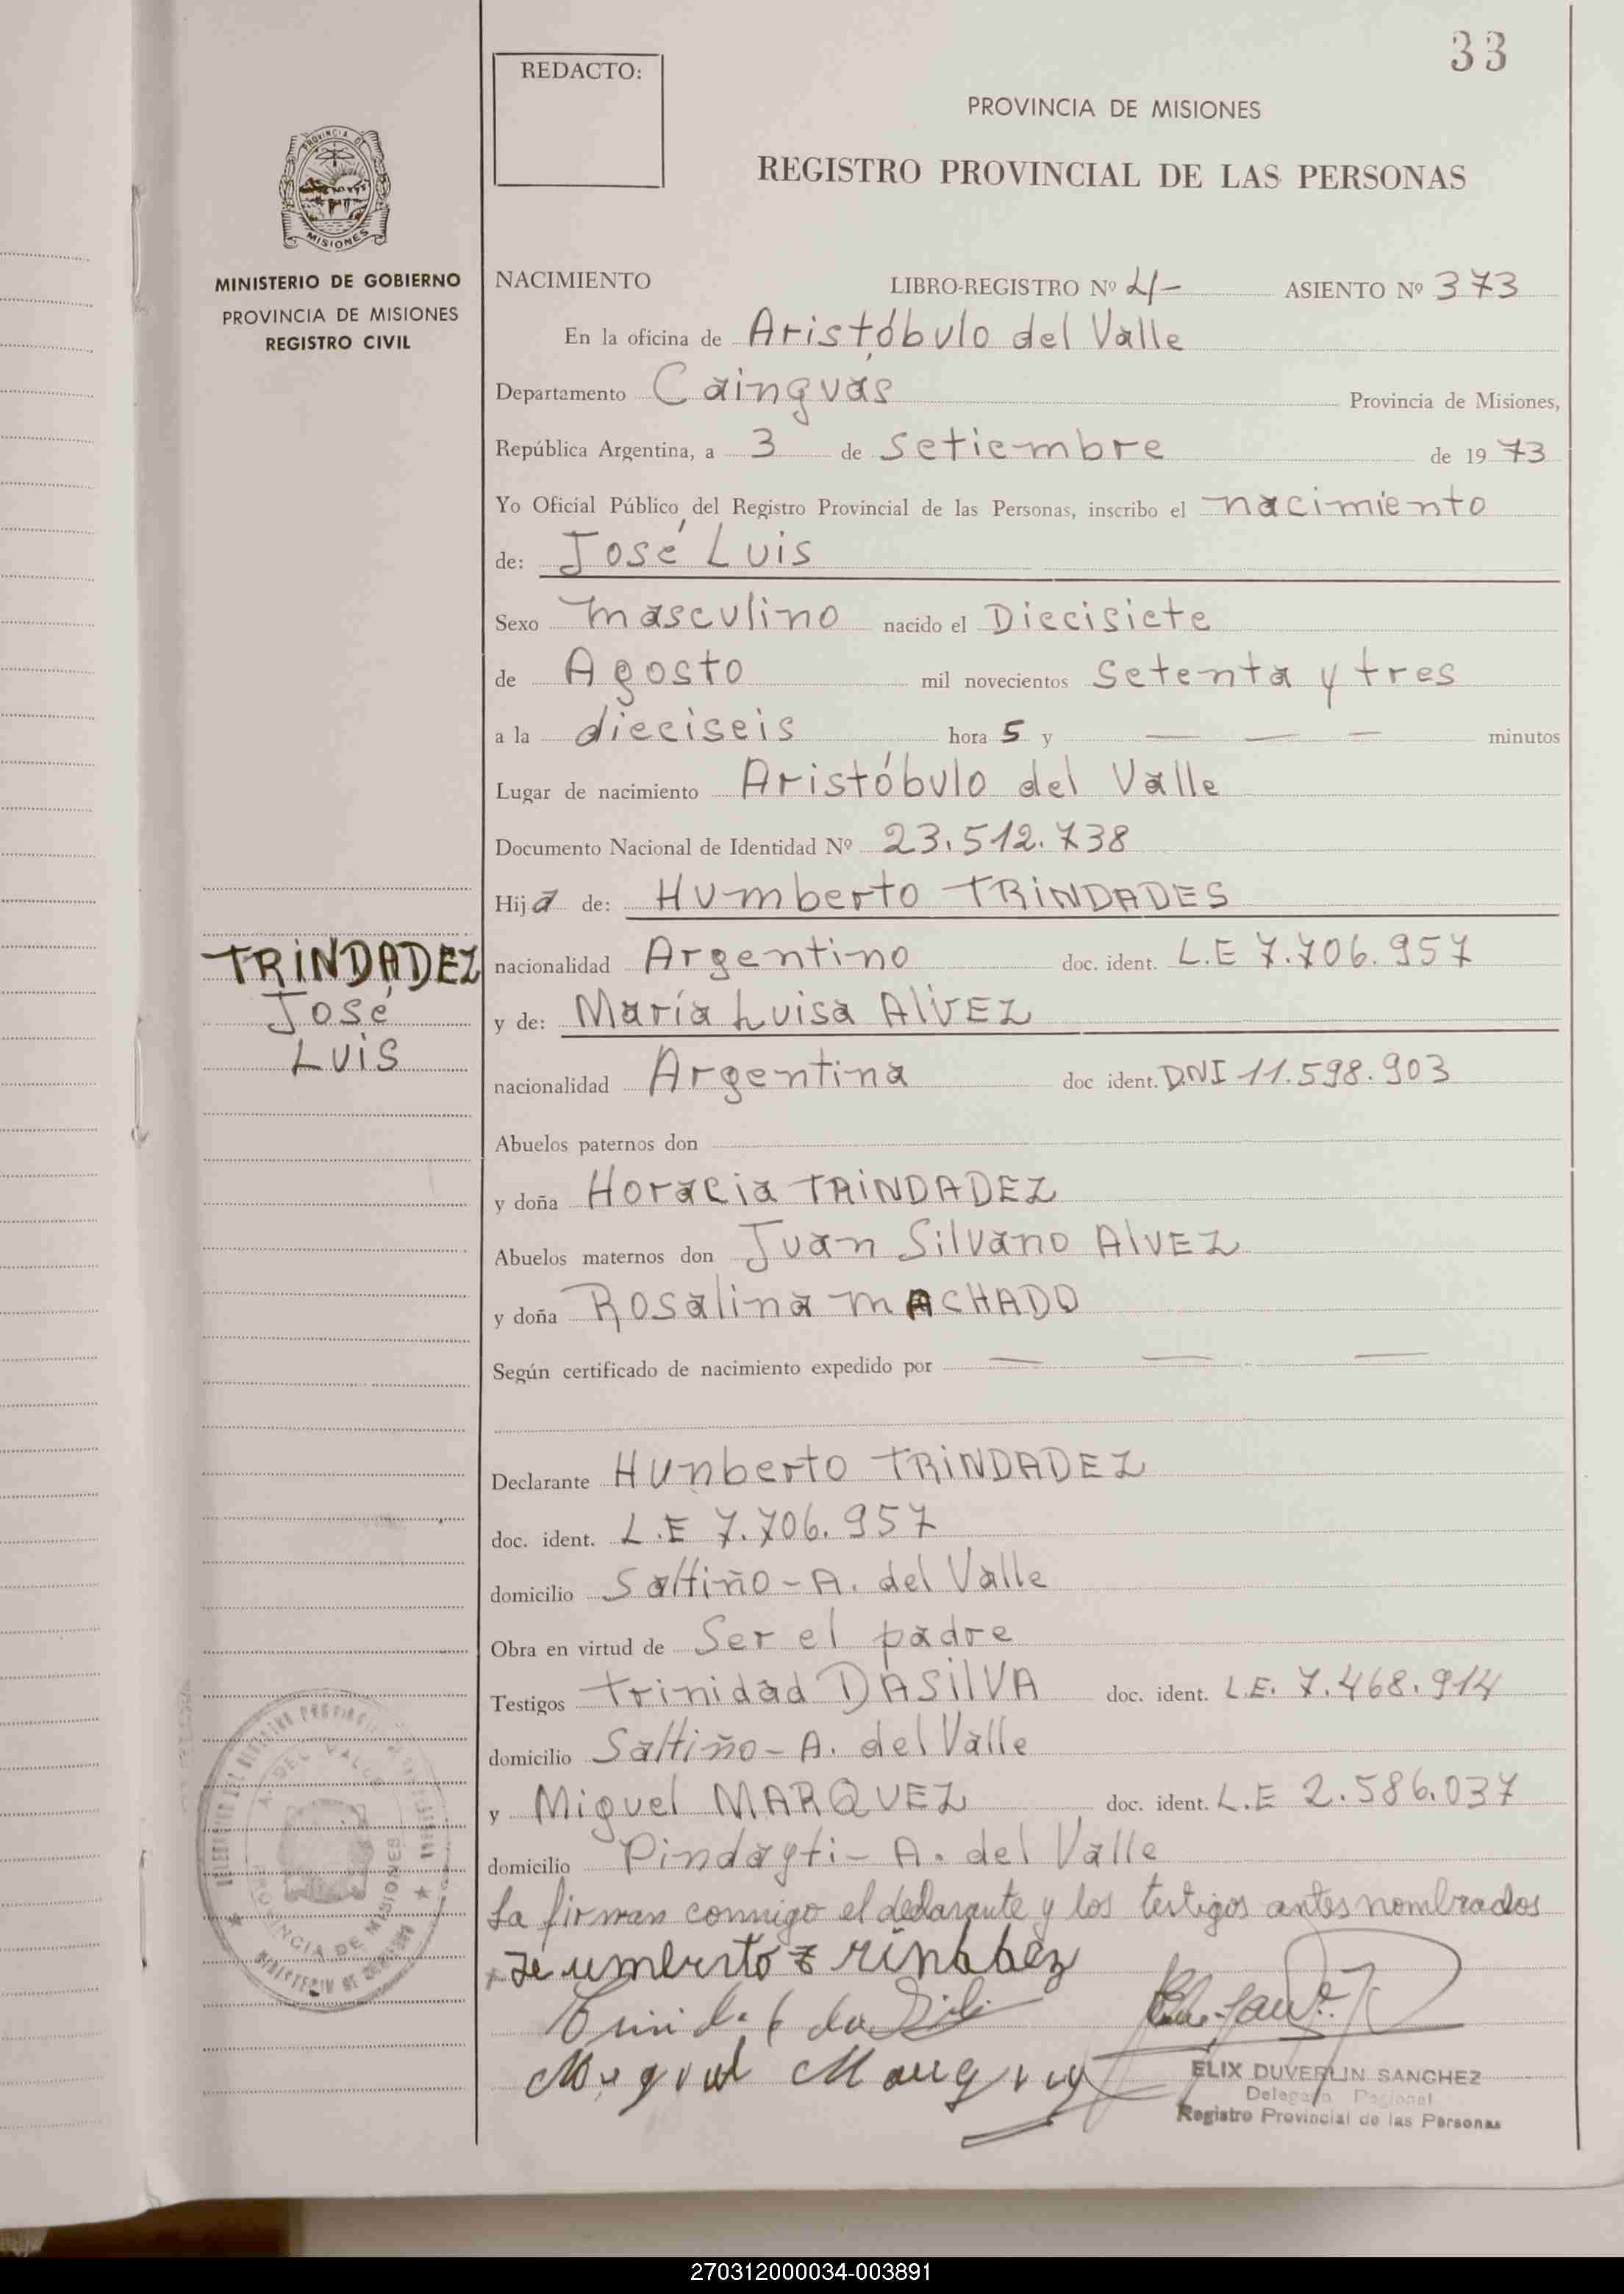 33
REDACTO:
PROVINCIA DE MISIONES
REGISTRO PROVINCIAL DE LAS PERSONAS
PROVINCIA DE
MISIONES
MINISTERIO DE GOBIERNO
PROVINCIA DE MISIONES
REGISTRO CIVIL
NACIMIENTO LIBRO-REGISTRO Nº 4- ASIENTO Nº 373
En la oficina de Aristóbulo del Valle
Departamento Cainguás Provincia de Misiones,
República Argentina, a 3 de Setiembre de 1973
Yo Oficial Público del Registro Provincial de las Personas, inscribo el nacimiento
de: José Luis
Sexo masculino nacido el Diecisiete
de Agosto mil novecientos setenta y tres
a la dieciseis hora s y — — — minutos
Lugar de nacimiento Aristóbulo del Valle
Documento Nacional de Identidad Nº 23.512.738
Hijo de: Humberto TRINDADES
nacionalidad Argentino doc. ident. L.E 7.706.957
y de: María Luisa AlVEZ
nacionalidad Argentina doc ident. DNI 11.598.903
TRINDADEZ
José
Luis
Abuelos paternos don
y doña Horacia TRINDADEZ
Abuelos maternos don Juan Silvano AlVEZ
y doña Rosalina MACHADO
Según certificado de nacimiento expedido por — — —
Declarante Hunberto TRINDADEZ
doc. ident. L.E 7.706.957
domicilio Saltiño - A. del Valle
Obra en virtud de Ser el padre
Testigos Trinidad DASILVA doc. ident. L.E. 7.468.914
domicilio Saltiño - A. del Valle
y Miguel MARQUEZ doc. ident. L.E 2.586.037
domicilio Pindayti - A. del Valle
La firman conmigo el declarante y los testigos antes nombrados
A. DEL VALLE
PROVINCIA DE MISIONES
ELIX DUVERLIN SANCHEZ
Delegado Regional
Registro Provincial de las Personas
270312000034-003891